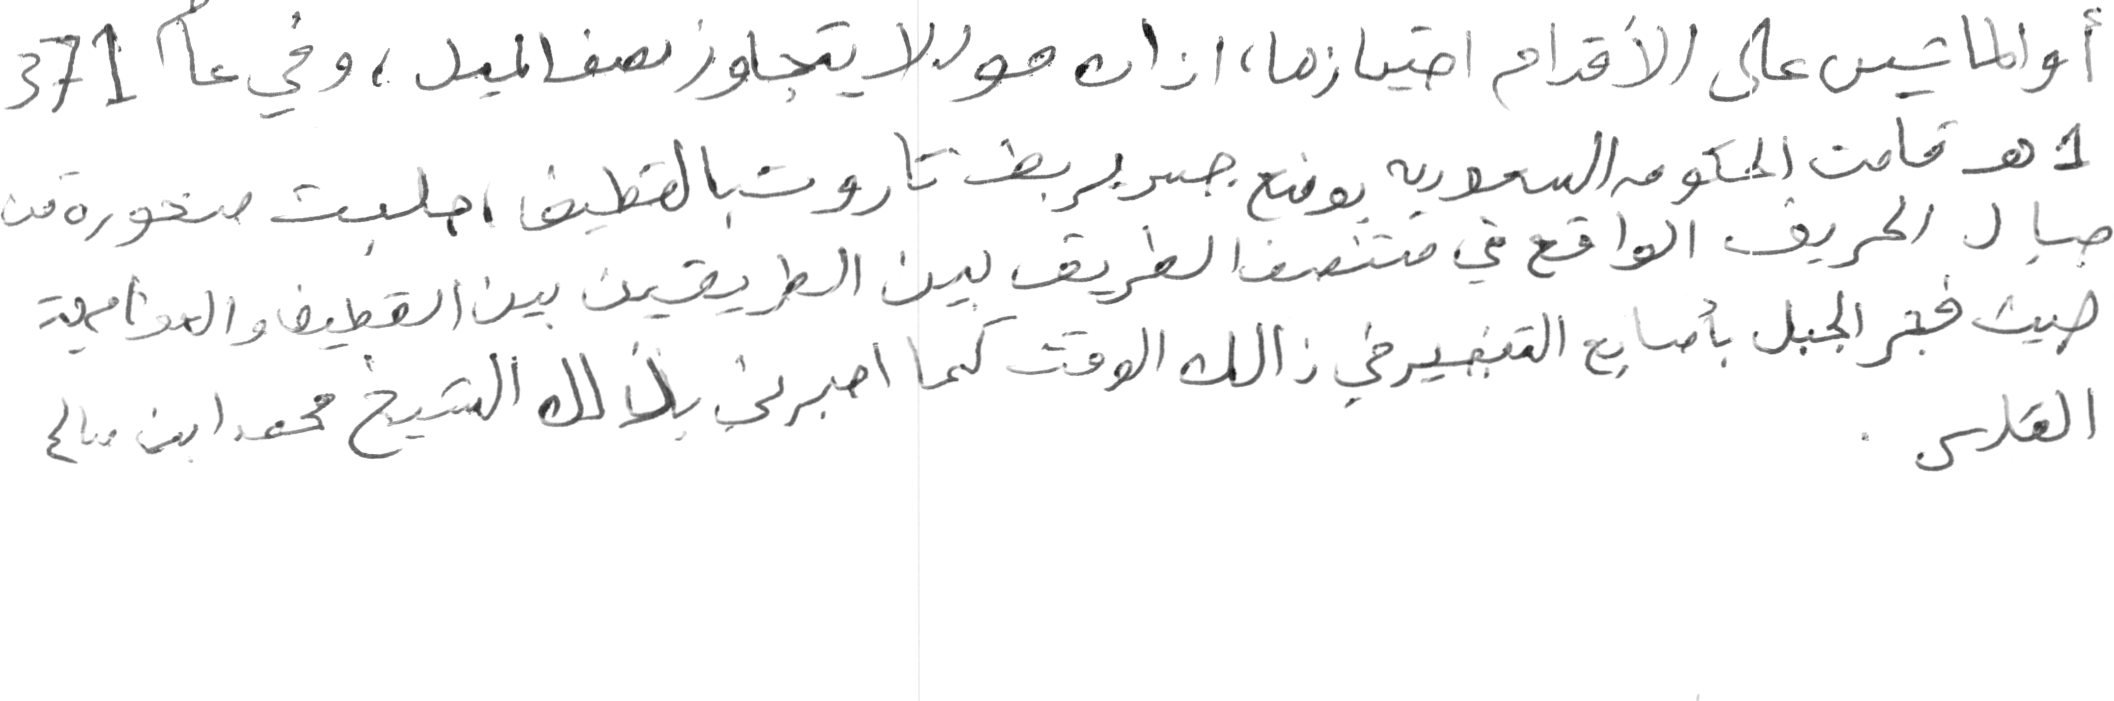 أو الماشيين على الأقدام اختيازها، اذ ان طوله لا يتجاوز نصف الميل، وفي عام 371
1 هـ قامت الحكومه السعوديه بوضع جسر يربط تاروت بالقطيف، جلبت صخوره من
جبال الحريف الواقع في منتصف الطريق بين الطريقين بين القطيف والعوامية
حيث فجر الجبل بأصابع التفجير في ذالك الوقت كما اخبرني بذالك الشيخ محمد ابن صالح
الفارس .